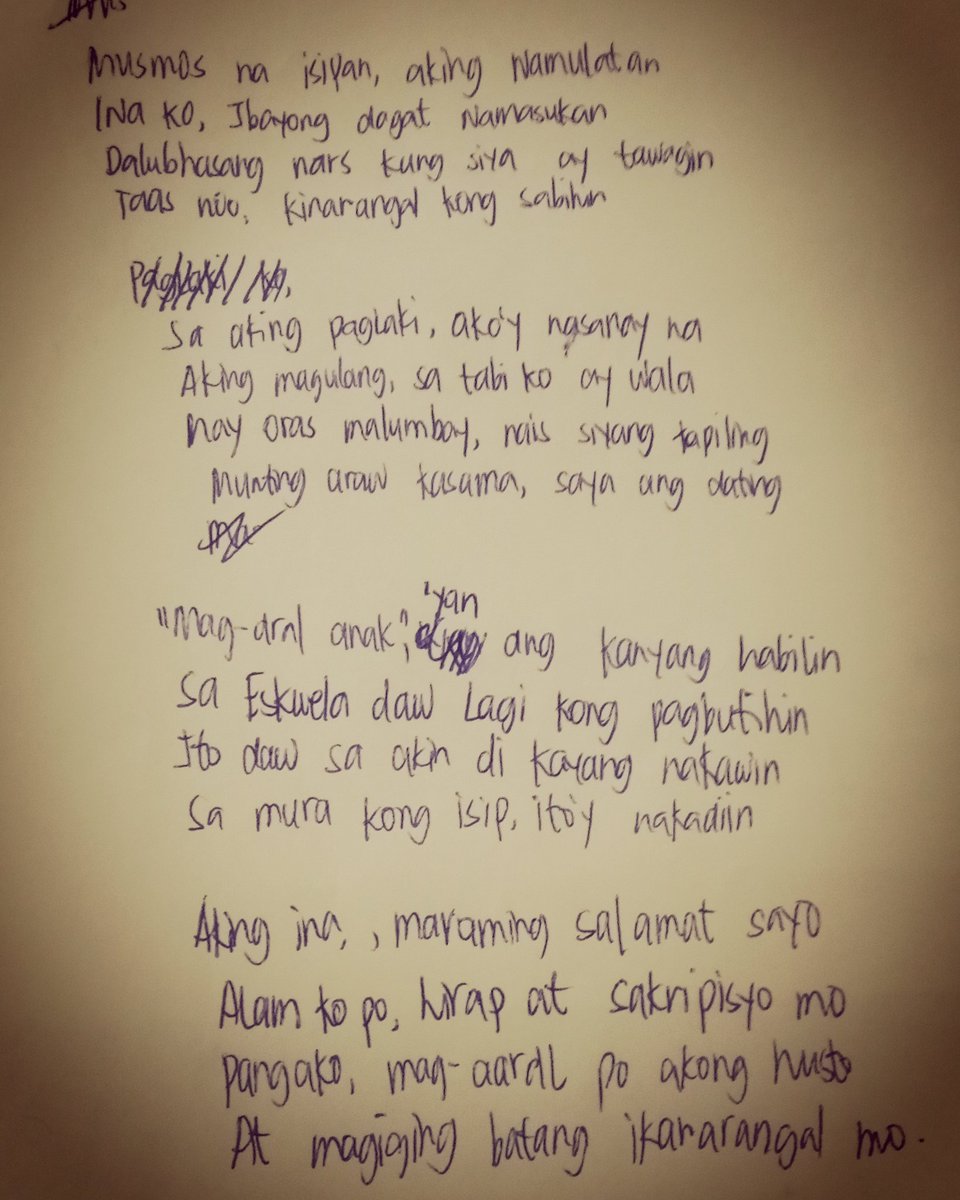 Musmos na isipan, aking Namulatan
INa ko, Ibayong dagat Namasukan
Dalubhasang nars kung siya ay tawagin
Taas noo, kinarangal kong sabihin
Sa aking paglaki, ako'y nasanay na
Aking magulang, sa tabi ko ay wala
May oras malumbay, nais siyang kapiling
Munting araw kasama, saya ang dating
'yan
"Mag-aral anak", ang kanyang habilin
Sa Eskwela daw Lagi kong pagbutihin
Ito daw sa akin di kayang nakawin
Sa mura kong isip, ito'y nakadiin
Aking ina, , maraming salamat sayo
Alam ko po, hirap at sakripisyo mo
Pangako, mag-aaral po akong husto
At magiging batang ikararangal mo.